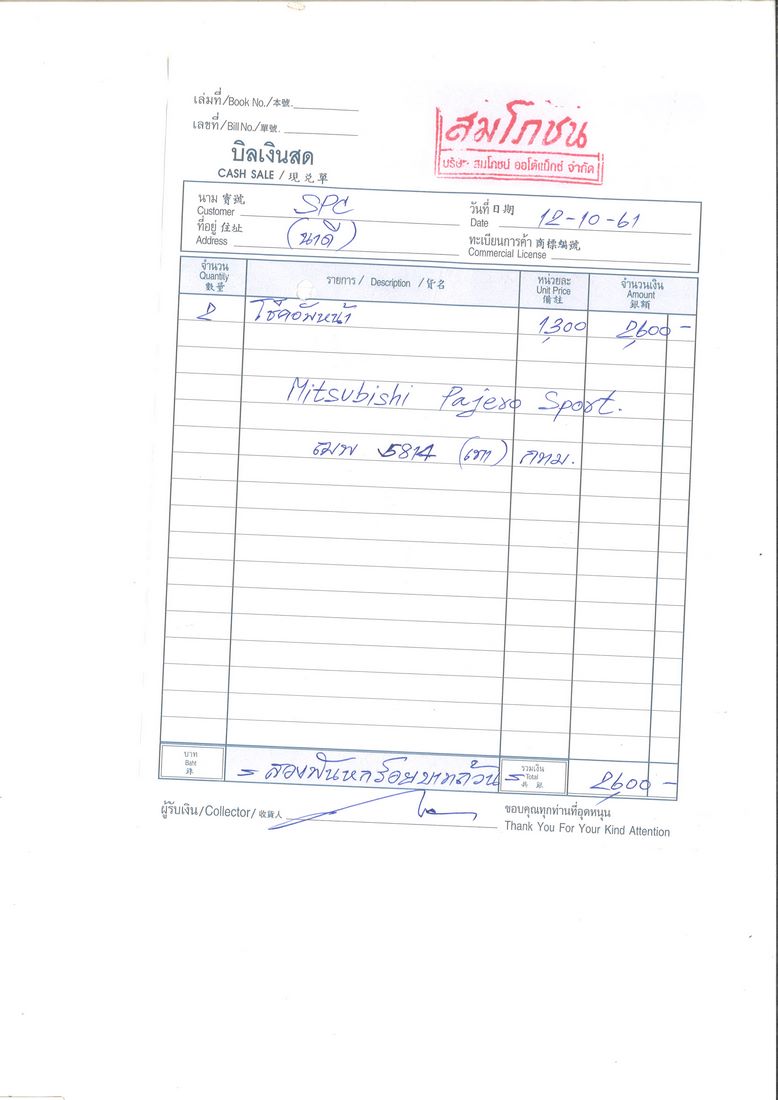 เล่มที่/Book No./本號.
เลขที่/Bill No./單號.
บิลเงินสด
CASH SALE / 現兑單
สมโภชน์
บริษัท สมโภชน์ ออโต้แม็กซ์ จำกัด
นาม 寶號 SPC
Customer
วันที่ 日期 12-10-61
Date
ที่อยู่ 住址 (นาดี)
Address
ทะเบียนการค้า 商標編號
Commercial License
จำนวน รายการ / Description / 貨名 หน่วยละ จำนวนเงิน
Quantity Unit Price Amount
數量 備註 銀額
2 โช๊คอัพหน้า 1,300 2,600 -
Mitsubishi Pajero Sport.
5814 (เทา) กทม.
บาท
Baht
銖
= สองพันหกร้อยบาทถ้วน =
รวมเงิน
Total
共銀
2,600 -
ผู้รับเงิน/Collector/收貨人
ขอบคุณทุกท่านที่อุดหนุน
Thank You For Your Kind Attention